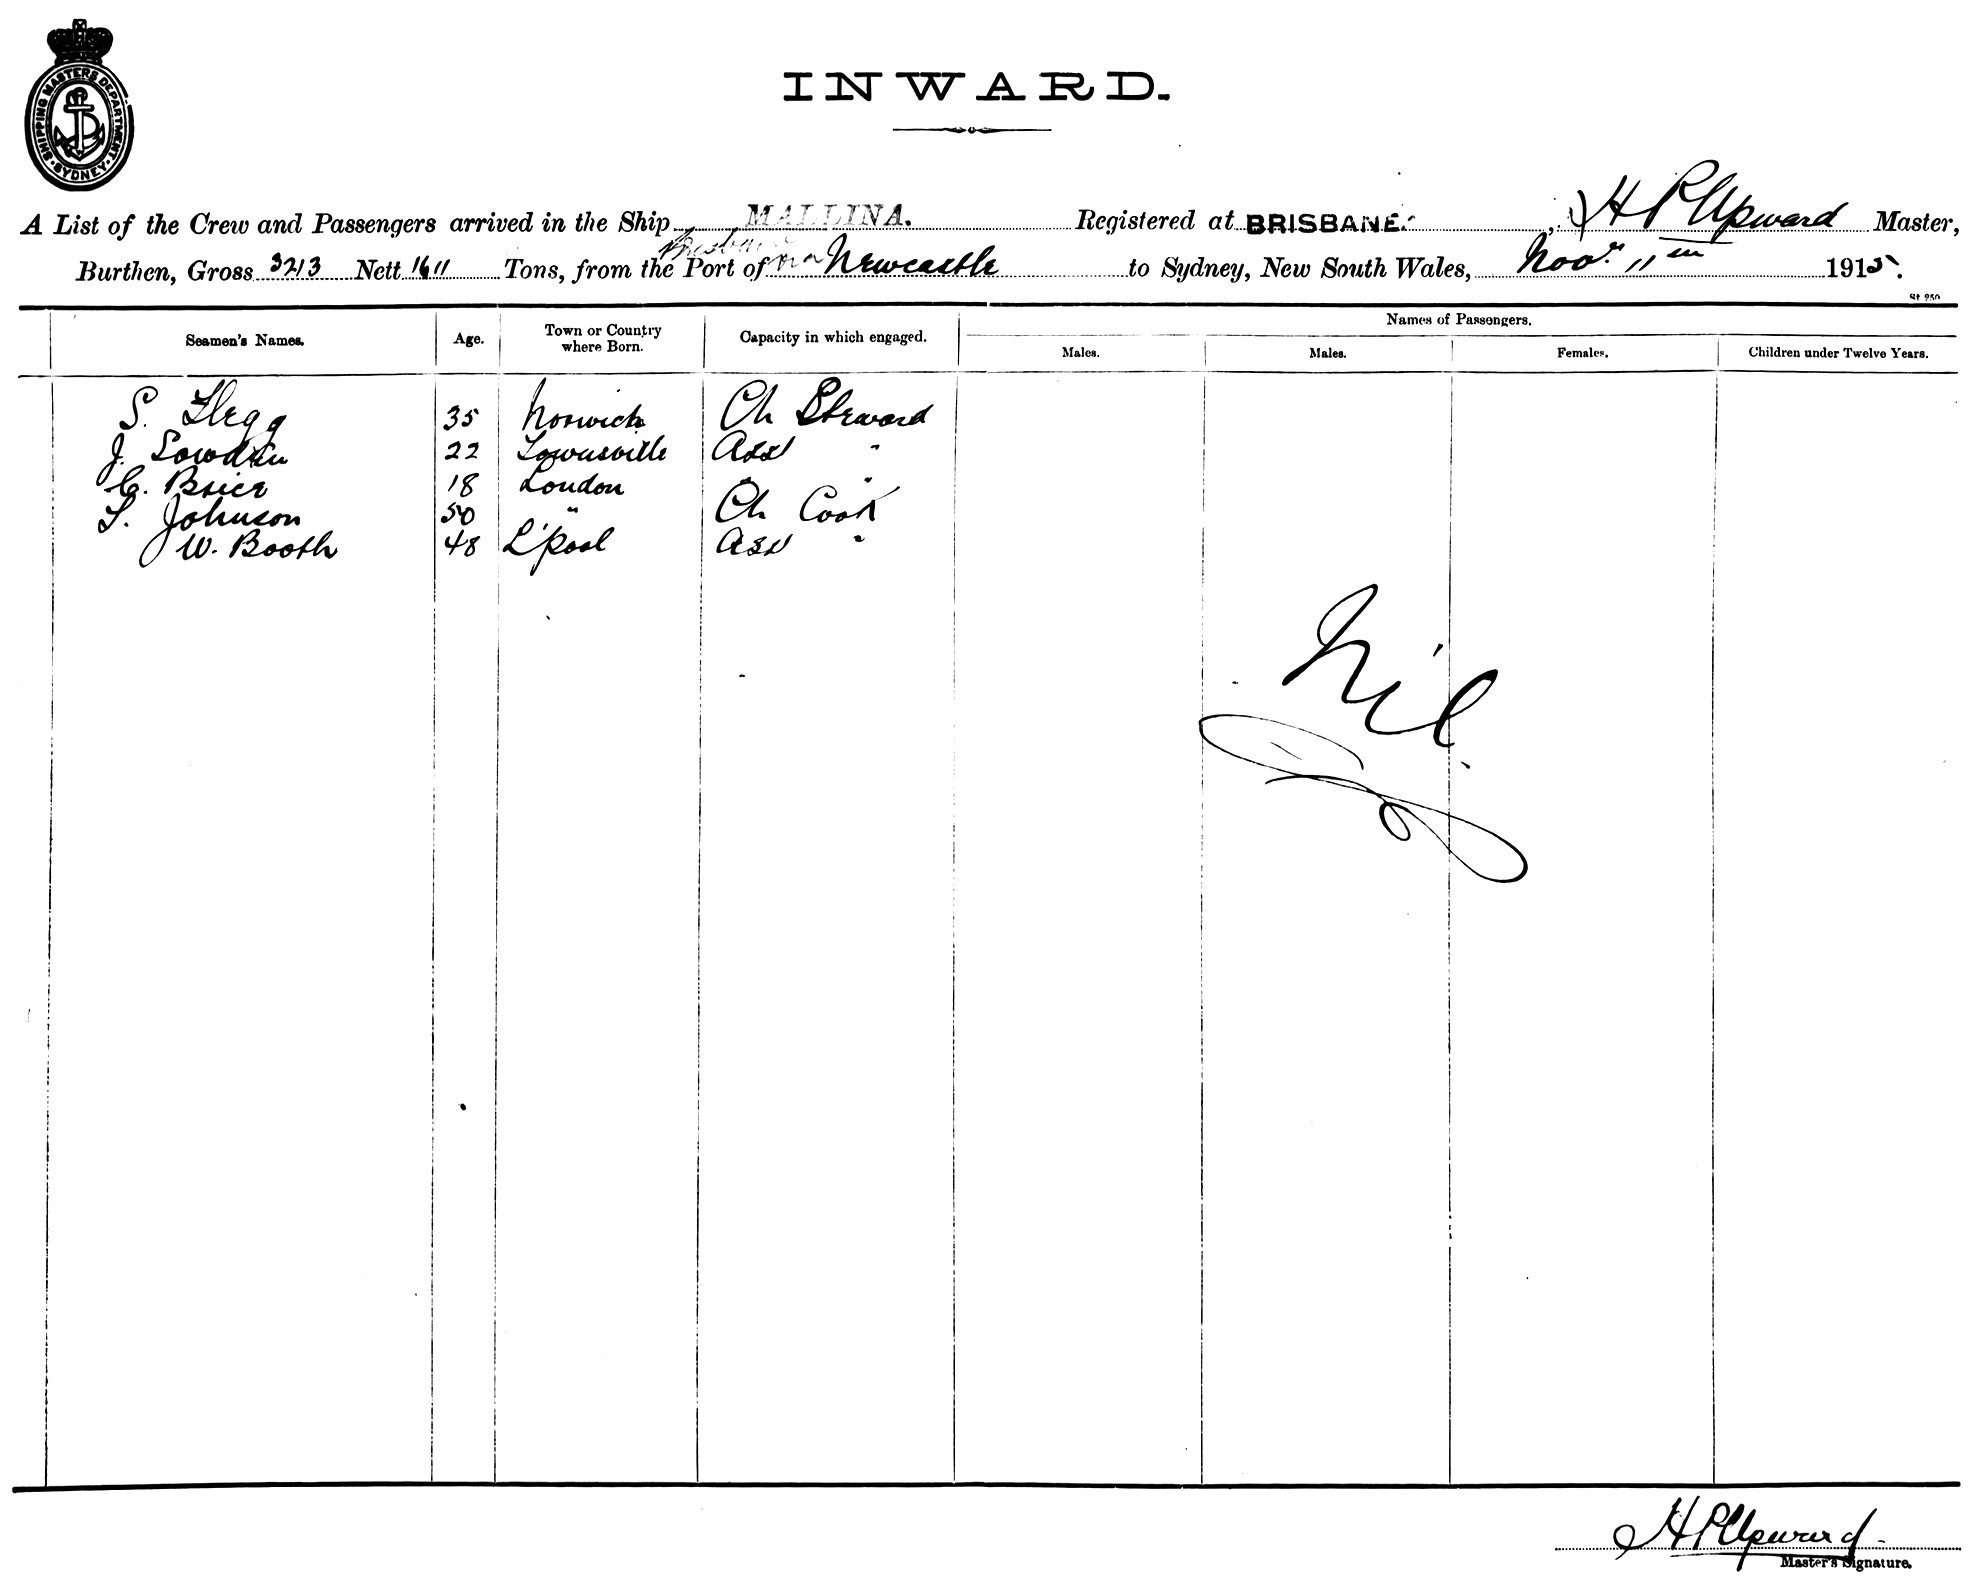 SHIPPING MASTERS DEPARTMENT · SYDNEY ·
INWARD.
A List of the Crew and Passengers arrived in the Ship MALLINA. Registered at BRISBANE. , H P Upward Master,
Burthen, Gross 3213 Nett 1611 Tons, from the Port of Brisbane via Newcastle to Sydney, New South Wales, Novr 11th 1915.
St 250
Seamen's Names. Age. Town or Country where Born. Capacity in which engaged. Names of Passengers.
Males. Males. Females. Children under Twelve Years.
S. Flegg 35 Norwich Ch Steward
J. Sowden 22 Townsville Asst "
C. Brice 18 London " "
S. Johnson 50 " Ch Cook
W. Booth 48 L'pool Asst "
Nil.
H P Upward
Master's Signature.